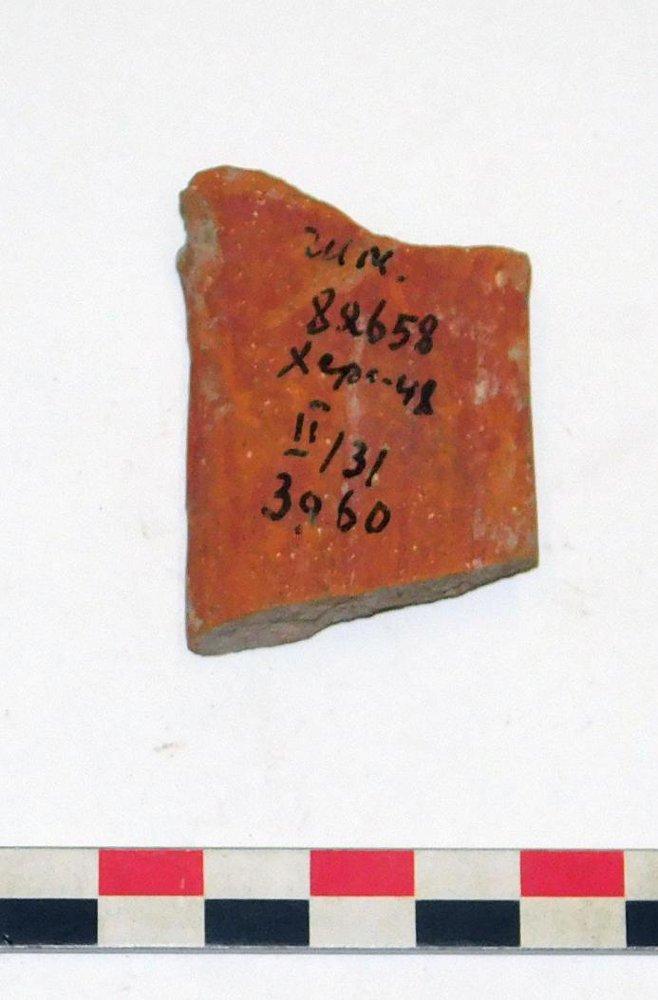 82658
Херс-48
II/31
3960